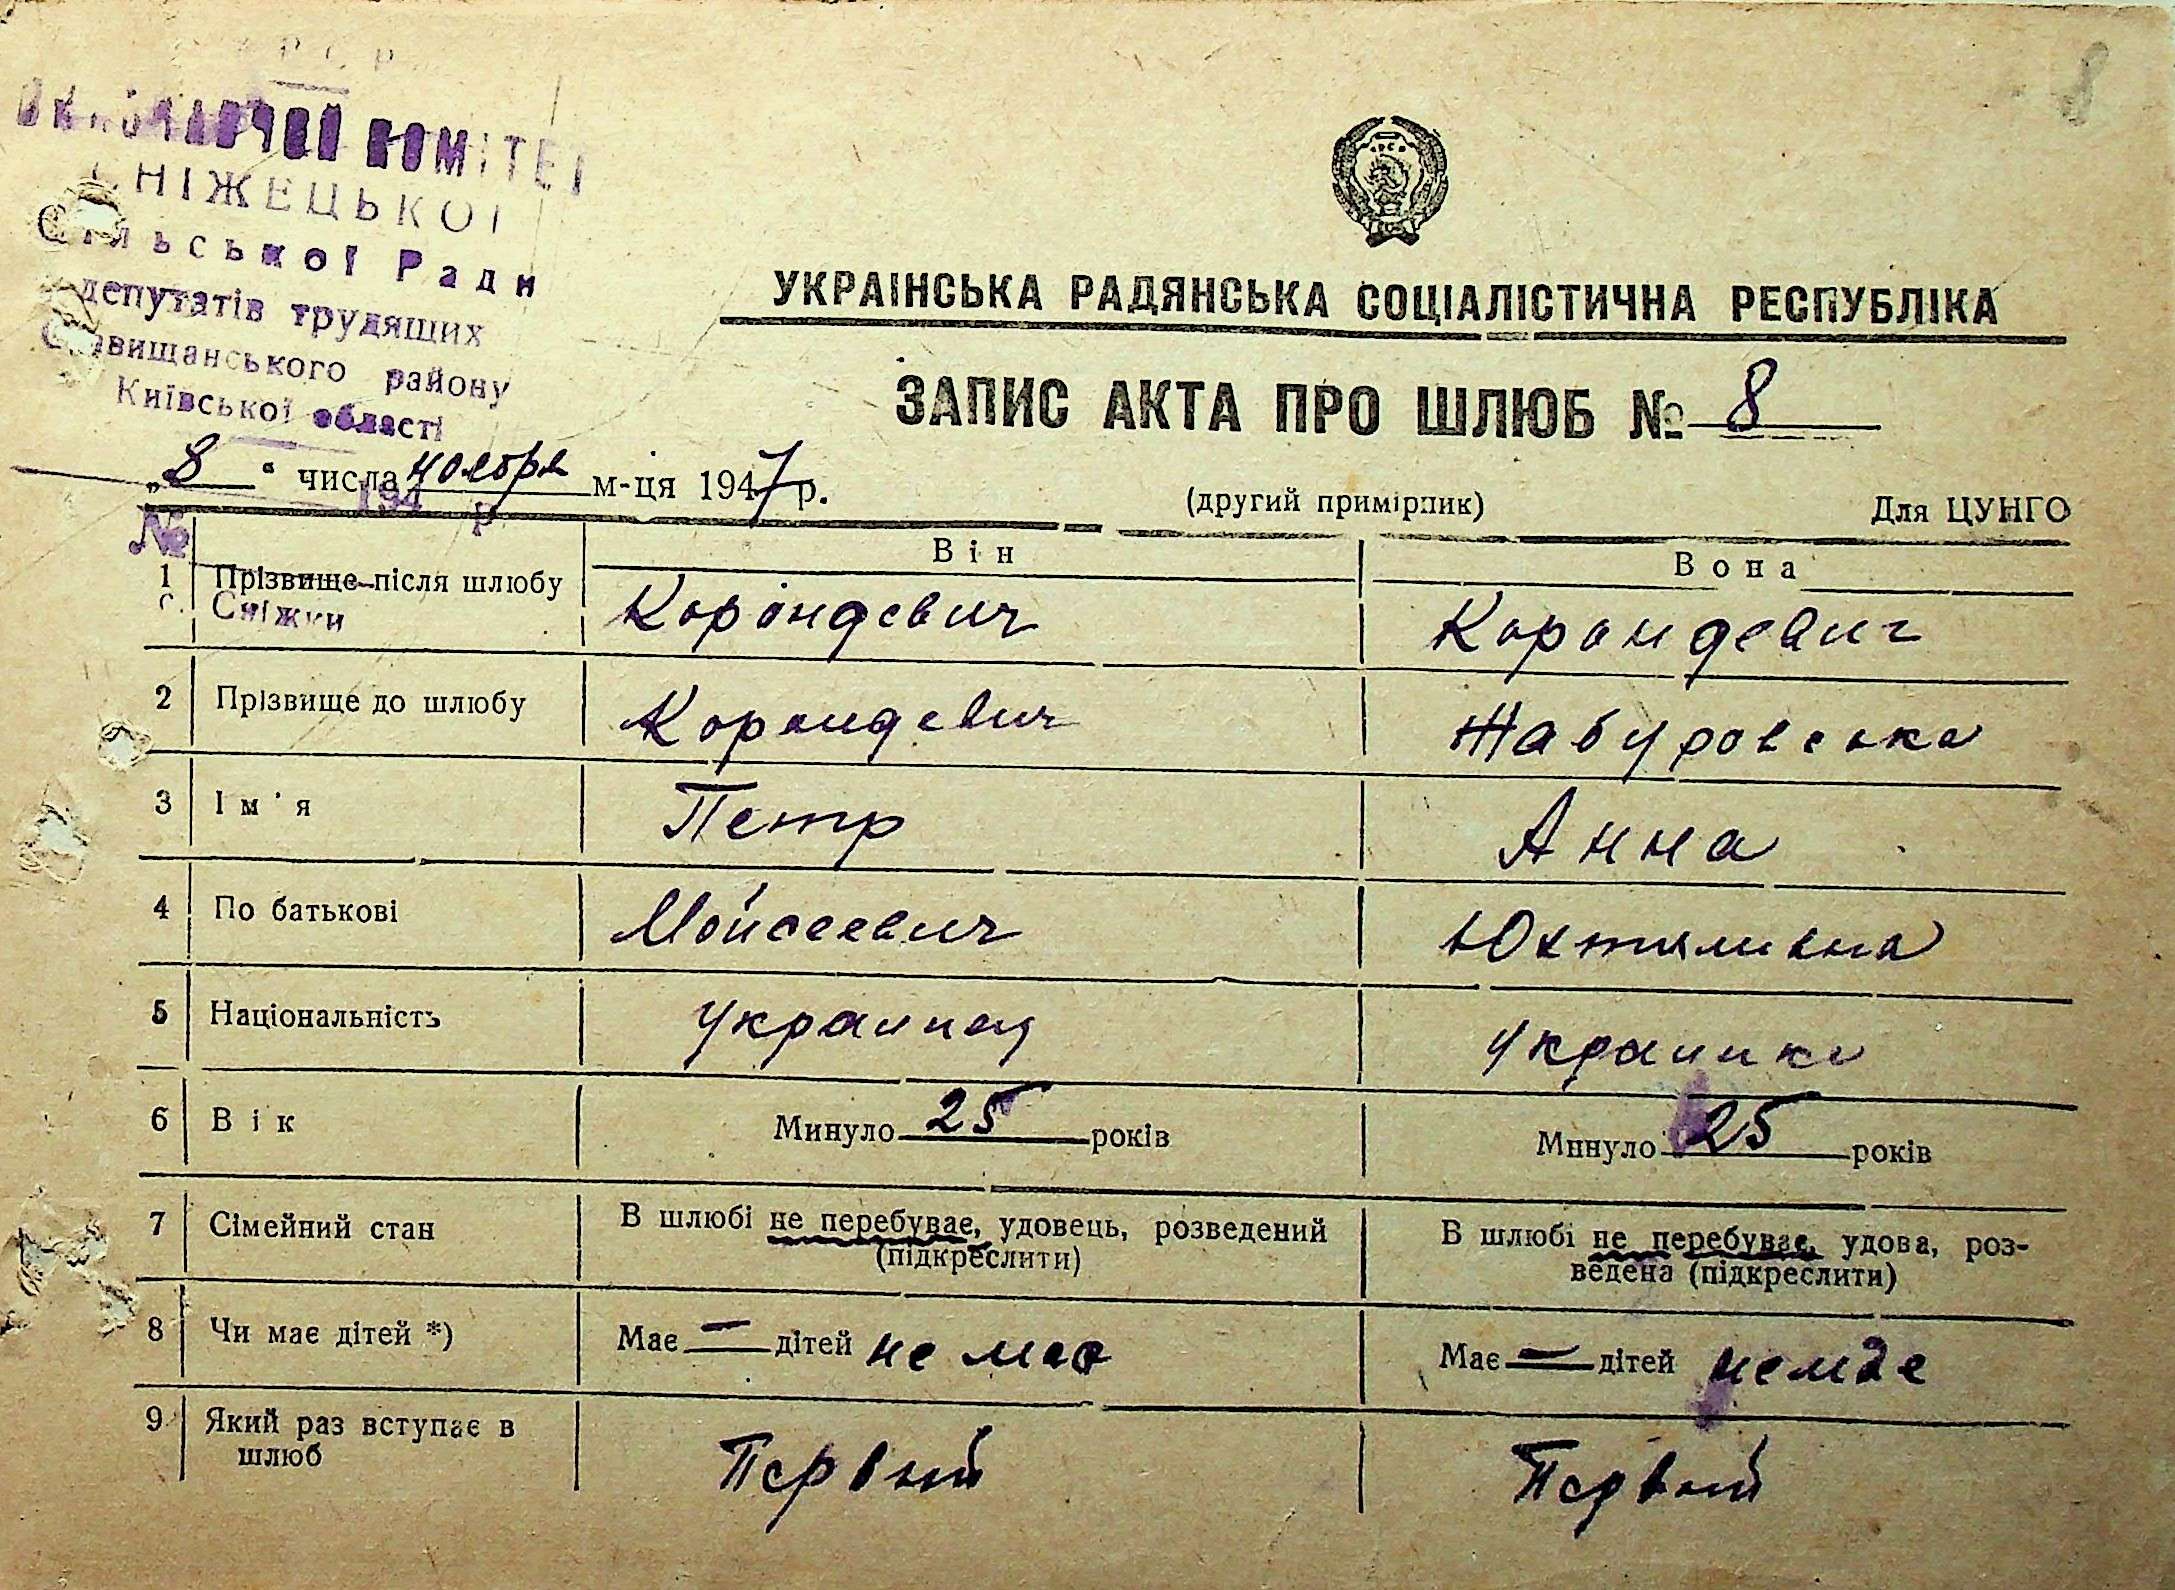 8
РСР
ВИКОНАВЧИЙ КОМІТЕТ
СНІЖЕЦЬКОЇ
Сільської Ради
депутатів трудящих
Ставищанського району
Київської області
194 р
№
с. Сніжки
УКРАЇНСЬКА РАДЯНСЬКА СОЦІАЛІСТИЧНА РЕСПУБЛІКА
ЗАПИС АКТА ПРО ШЛЮБ № 8
„8" числа ноября м-ця 1947 р.
(другий примірник) Для ЦУНГО
Він Вона
1 Прізвище після шлюбу Корондевич Корондевич
2 Прізвище до шлюбу Корондевич Жабуровська
3 Ім'я Петр Анна
4 По батькові Мойсеевич Юхтимівна
5 Національність украинец украинка
6 Вік Минуло 25 років Минуло 25 років
7 Сімейний стан В шлюбі не перебуває, удовець, розведений В шлюбі не перебуває, удова, роз-
(підкреслити) ведена (підкреслити)
8 Чи має дітей *) Має — дітей не має Має — дітей немає
9 Який раз вступає в Первый Первый
шлюб